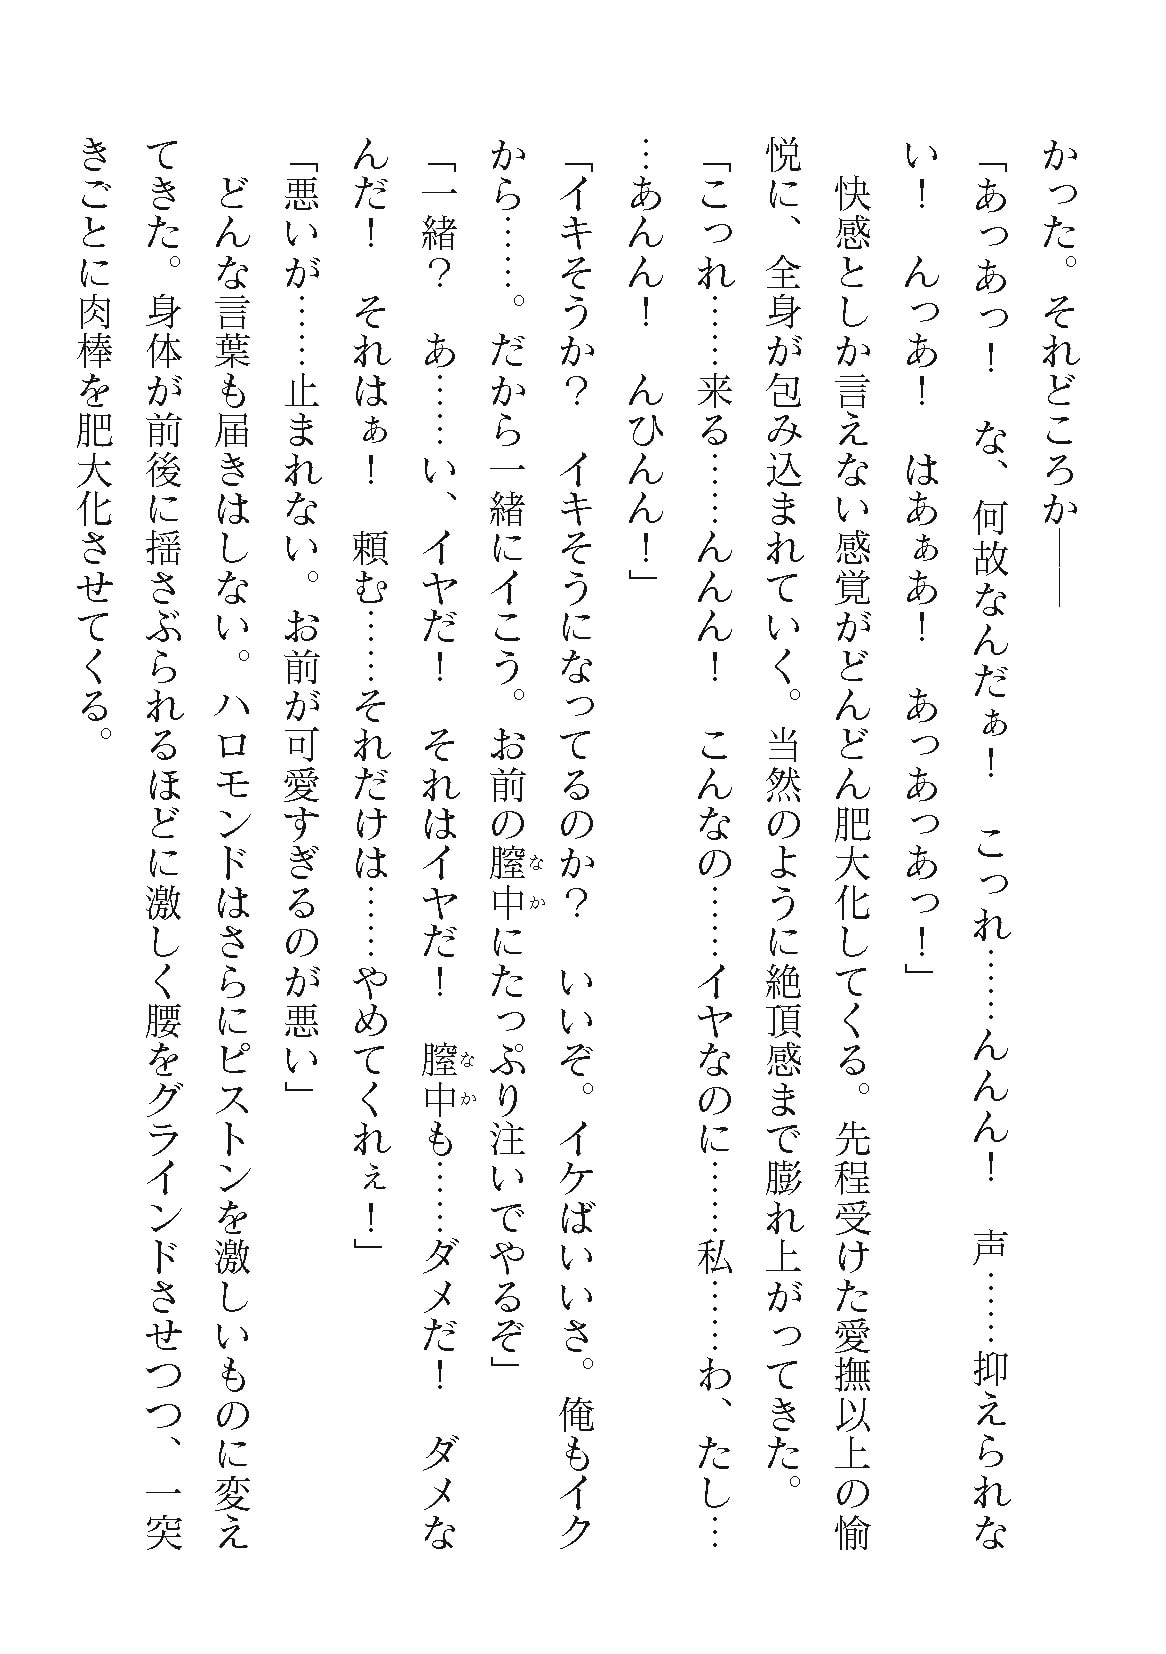 かった。それどころか――
「あっあっ！　な、何故なんだぁ！　こっれ……んんん！　声……抑えられな
い！　んっあ！　はあぁあ！　あっあっあっ！」
　快感としか言えない感覚がどんどん肥大化してくる。先程受けた愛撫以上の愉
悦に、全身が包み込まれていく。当然のように絶頂感まで膨れ上がってきた。
「こっれ……来る……んんん！　こんなの……イヤなのに……私……わ、たし…
…あんん！　んひんん！」
「イキそうか？　イキそうになってるのか？　いいぞ。イケばいいさ。俺もイク
から……。だから一緒にイこう。お前の膣中にたっぷり注いでやるぞ」
「一緒？　あ……い、イヤだ！　それはイヤだ！　膣中も……ダメだ！　ダメな
んだ！　それはぁ！　頼む……それだけは……やめてくれぇ！」
「悪いが……止まれない。お前が可愛すぎるのが悪い」
　どんな言葉も届きはしない。ハロモンドはさらにピストンを激しいものに変え
てきた。身体が前後に揺さぶられるほどに激しく腰をグラインドさせつつ、一突
きごとに肉棒を肥大化させてくる。